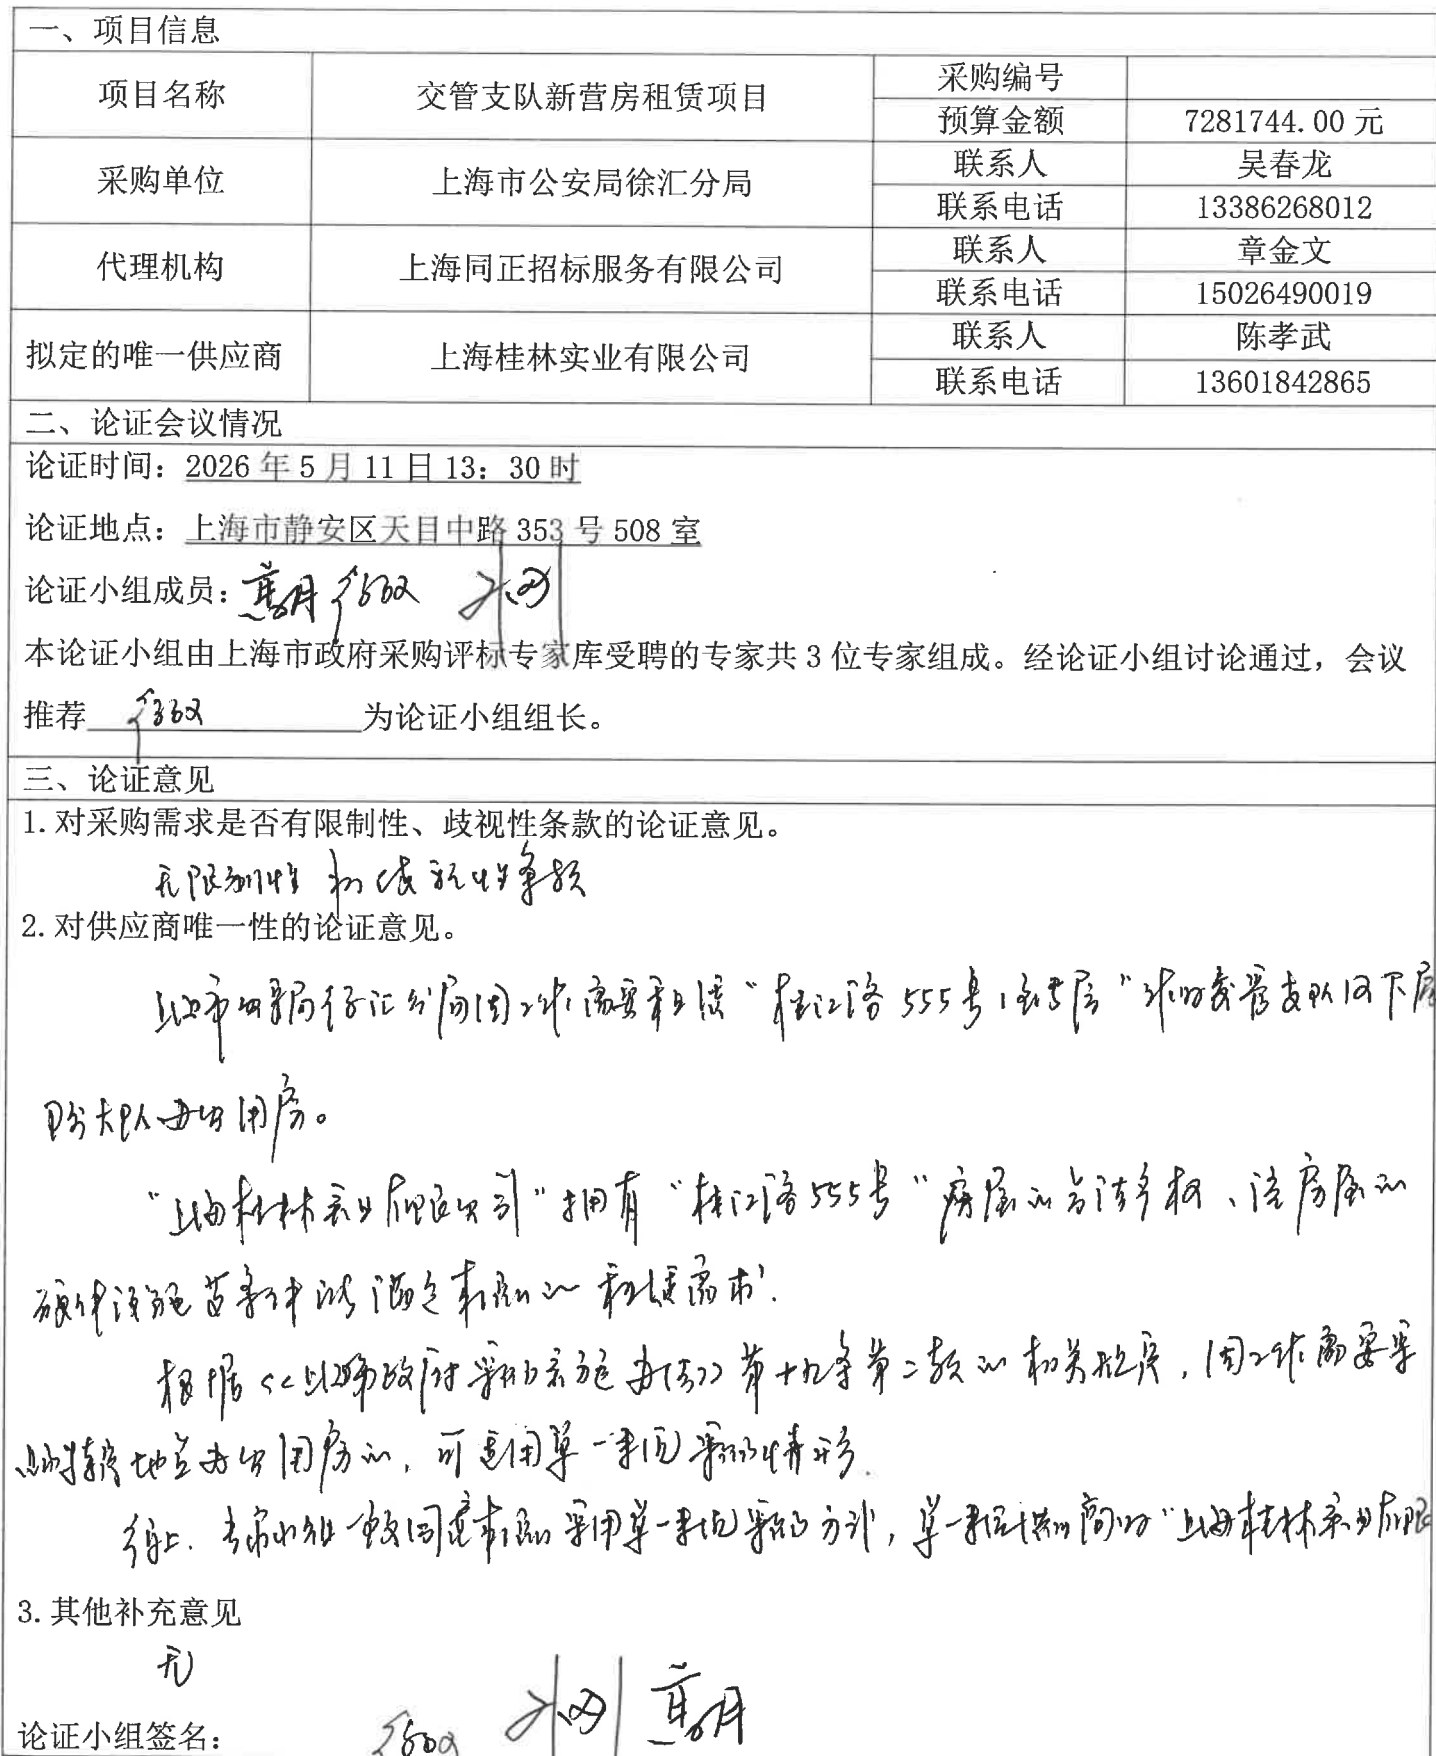 一、项目信息
项目名称 交管支队新营房租赁项目 采购编号
预算金额 7281744.00 元
采购单位 上海市公安局徐汇分局 联系人 吴春龙
联系电话 13386268012
代理机构 上海同正招标服务有限公司 联系人 章金文
联系电话 15026490019
拟定的唯一供应商 上海桂林实业有限公司 联系人 陈孝武
联系电话 13601842865
二、论证会议情况
论证时间：2026 年 5 月 11 日 13：30 时
论证地点：上海市静安区天目中路 353 号 508 室
论证小组成员：
本论证小组由上海市政府采购评标专家库受聘的专家共 3 位专家组成。经论证小组讨论通过，会议
推荐 为论证小组组长。
三、论证意见
1.对采购需求是否有限制性、歧视性条款的论证意见。
无限制性和歧视性条款
2.对供应商唯一性的论证意见。
上海市公安局徐汇分局因工作需要租赁“桂江路555号 房”作为交管支队及下属
大队办公用房。
“上海桂林实业有限公司”拥有“桂江路555号”房屋的合法产权、该房屋的
硬件设施等条件均满足本项目的租赁需求.
根据<<上海市政府采购实施办法>>第十九条第二款的相关规定，因工作需要采
购特定地点办公用房的，可适用单一来源采购情形.
综上.专家小组一致同意本项目采用单一来源采购方式，单一来源供应商为“上海桂林实业有限
3.其他补充意见
无
论证小组签名：